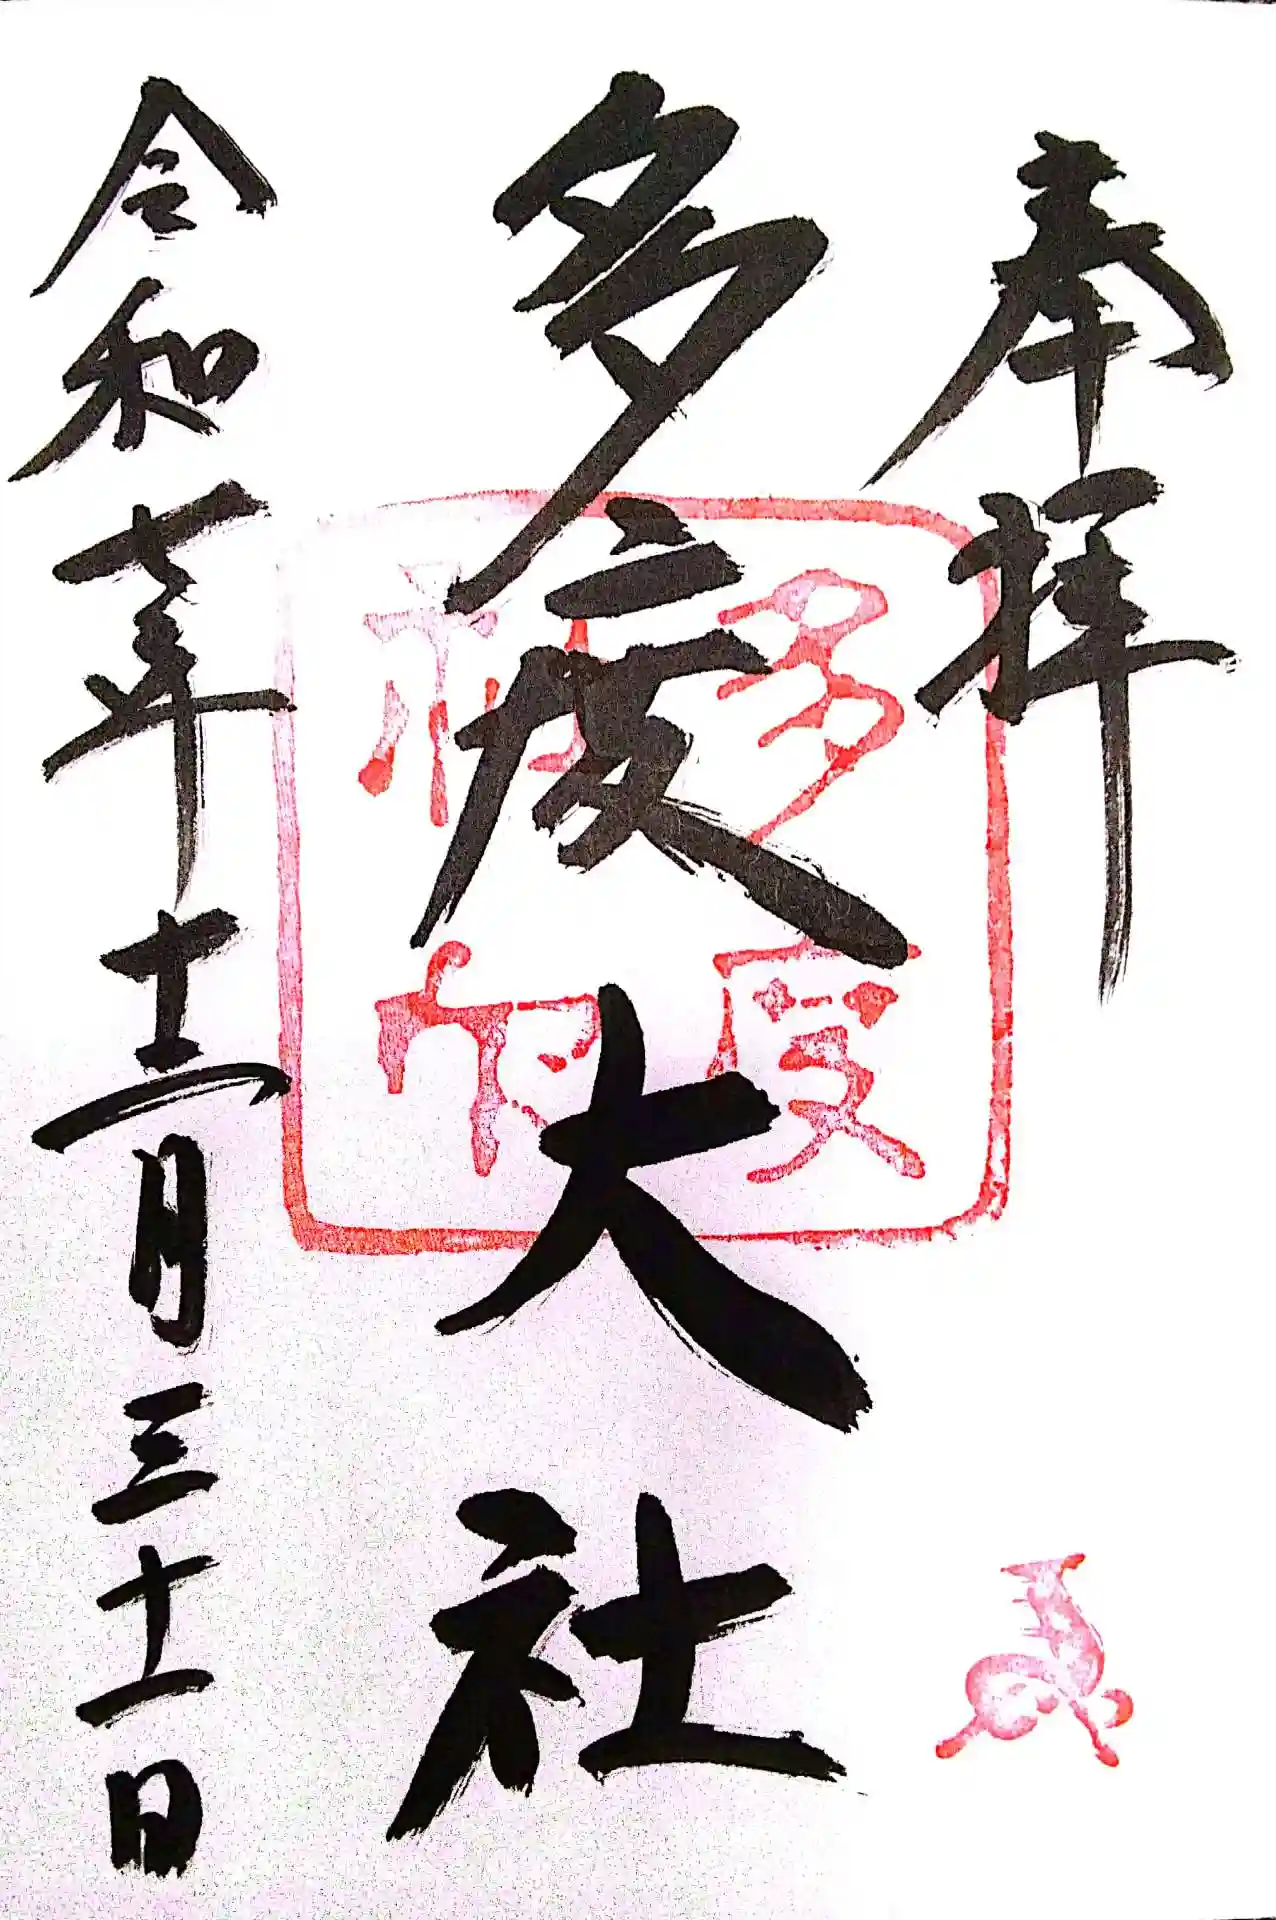 奉拝
多度大社
多度
社印
令和七年十二月三十一日